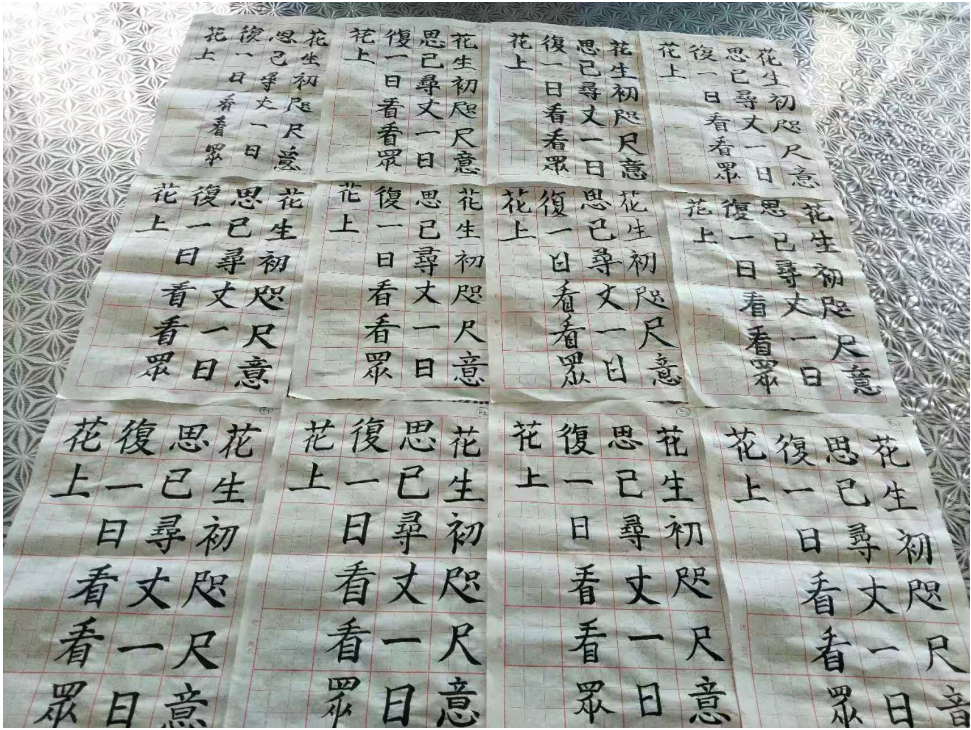 花生初咫尺意
思已尋丈一日
復一日看看眾
花上
花生初咫尺意
思已尋丈一日
復一日看看眾
花上
花生初咫尺意
思已尋丈一日
復一日看看眾
花上
花生初咫尺意
思已尋丈一日
復一日看看眾
花上
花生初咫尺意
思已尋丈一日
復一日看看眾
花上
花生初咫尺意
思已尋丈一日
復一日看看眾
花上
花生初咫尺意
思已尋丈一日
復一日看看眾
花上
花生初咫尺意
思已尋丈一日
復一日看看眾
花上
花生初咫尺意
思已尋丈一日
復一日看看眾
花上
花生初咫尺意
思已尋丈一日
復一日看看眾
花上
花生初咫尺意
思已尋丈一日
復一日看看眾
花上
花生初咫尺意
思已尋丈一日
復一日看看眾
花上